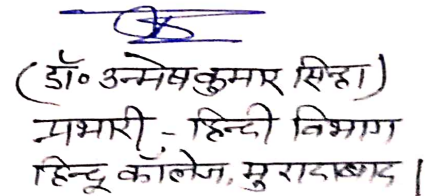 (डॉ० उन्मेषकुमार सिन्हा)
प्रभारी,- हिन्दी विभाग
हिन्दू कॉलेज, मुरादाबाद।